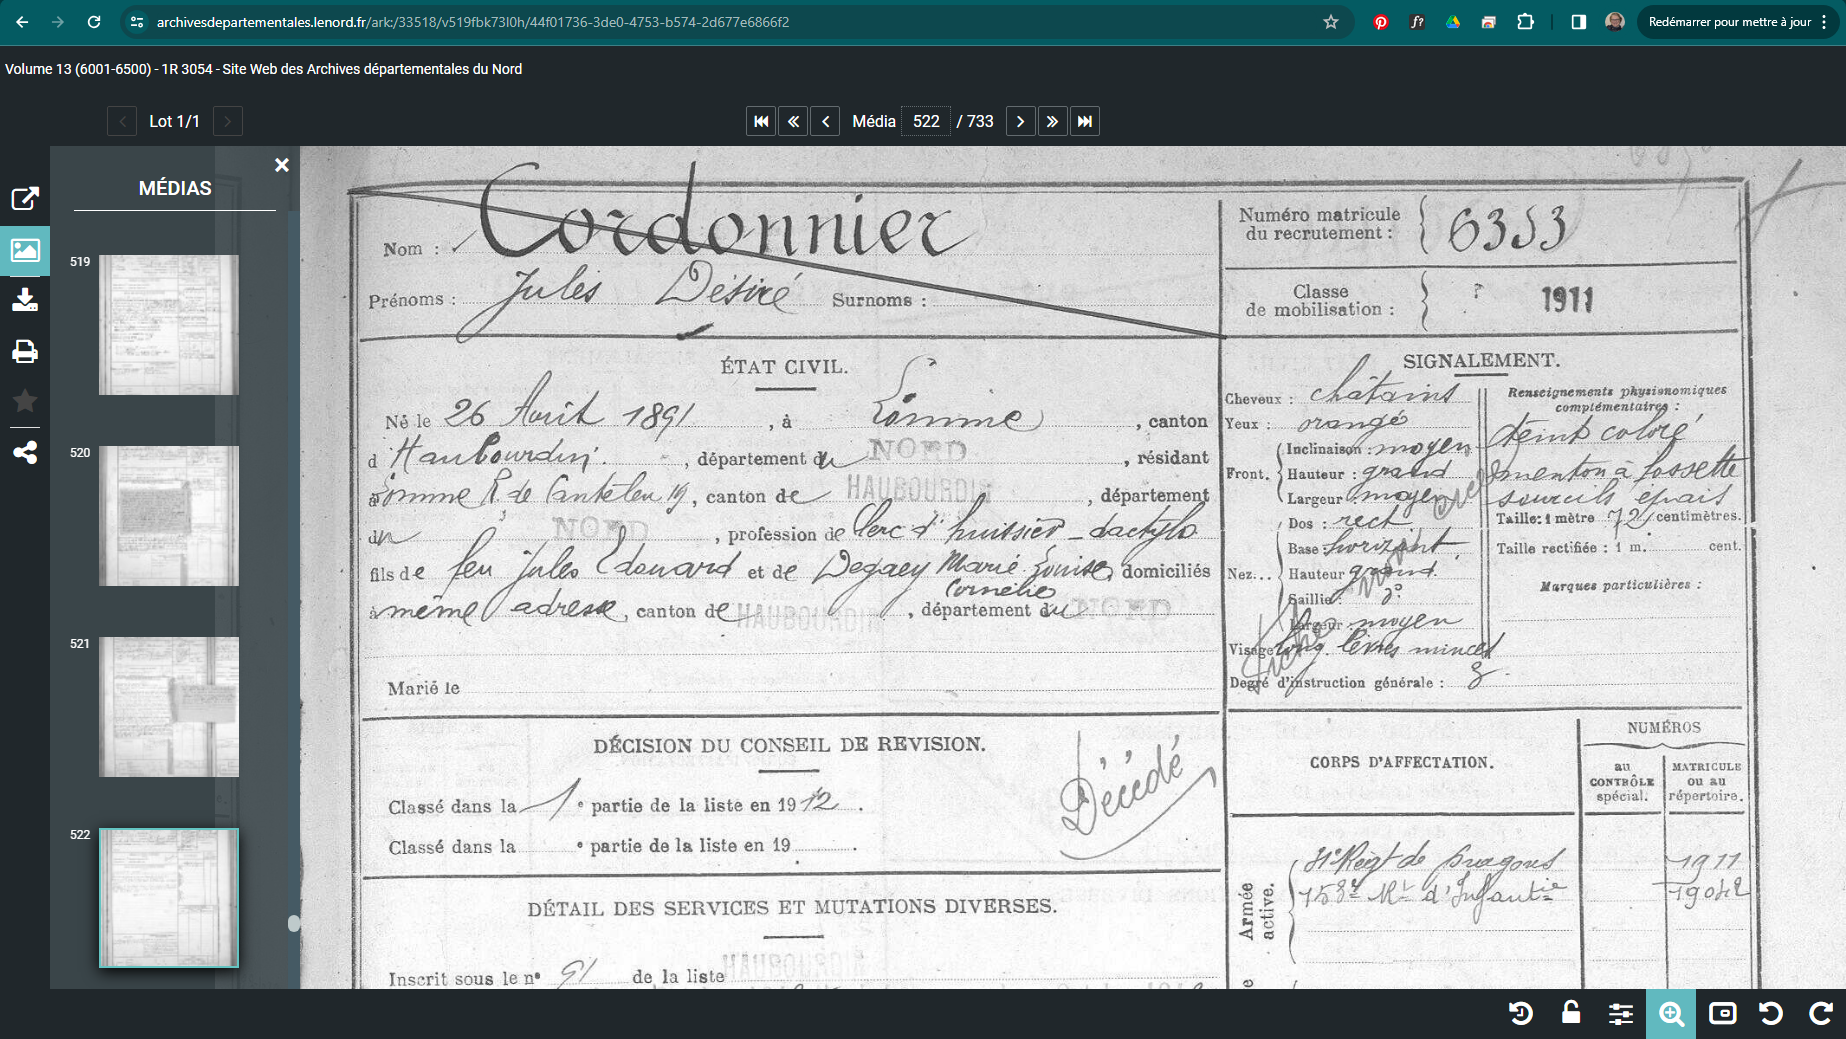 archivesdepartementales.lenord.fr/ark:/33518/v519fbk73l0h/44f01736-3de0-4753-b574-2d677e6866f2
Redémarrer pour mettre à jour
Volume 13 (6001-6500) - 1R 3054 - Site Web des Archives départementales du Nord
Lot 1/1
Média 522 / 733
MÉDIAS
519
520
521
522
Nom : Cordonnier
Prénoms : Jules Désiré Surnoms :
Numéro matricule
du recrutement : 6353
Classe
de mobilisation : ? 1911
ÉTAT CIVIL.
Né le 26 Avril 1891, à Lomme, canton
d'Haubourdin, département du NORD, résidant
à Lomme R. de Canteleu 19, canton de HAUBOURDIN, département
du NORD, profession de clerc d'huissier - dactylo
fils de feu Jules Edouard et de Degaey Marie Louise, domiciliés
Cornélie
à même adresse, canton de HAUBOURDIN, département du NORD
Marié le
SIGNALEMENT.
Cheveux : châtains
Yeux : orangé
Front. Inclinaison : moyen
Hauteur : grand
Largeur : moyen
Nez... Dos : rect.
Base : horizont.
Hauteur grand.
Saillie :
Largeur : moyen
Visage long. lèvres minces
Degré d'instruction générale : 3.
Renseignements physionomiques
complémentaires :
teint coloré
menton à fossette
sourcils épais
Taille : 1 mètre 72 centimètres.
Taille rectifiée : 1 m. cent.
Marques particulières :
DÉCISION DU CONSEIL DE REVISION.
Classé dans la 1e partie de la liste en 1912.
Classé dans la e partie de la liste en 19 .
Décédé
DÉTAIL DES SERVICES ET MUTATIONS DIVERSES.
Inscrit sous le n° 91 de la liste HAUBOURDIN
CORPS D'AFFECTATION.
NUMÉROS
au
CONTRÔLE
spécial.
MATRICULE
ou au
répertoire.
Armée
active.
Régt de Dragons 1911
158e Rt d'Infantie 19042